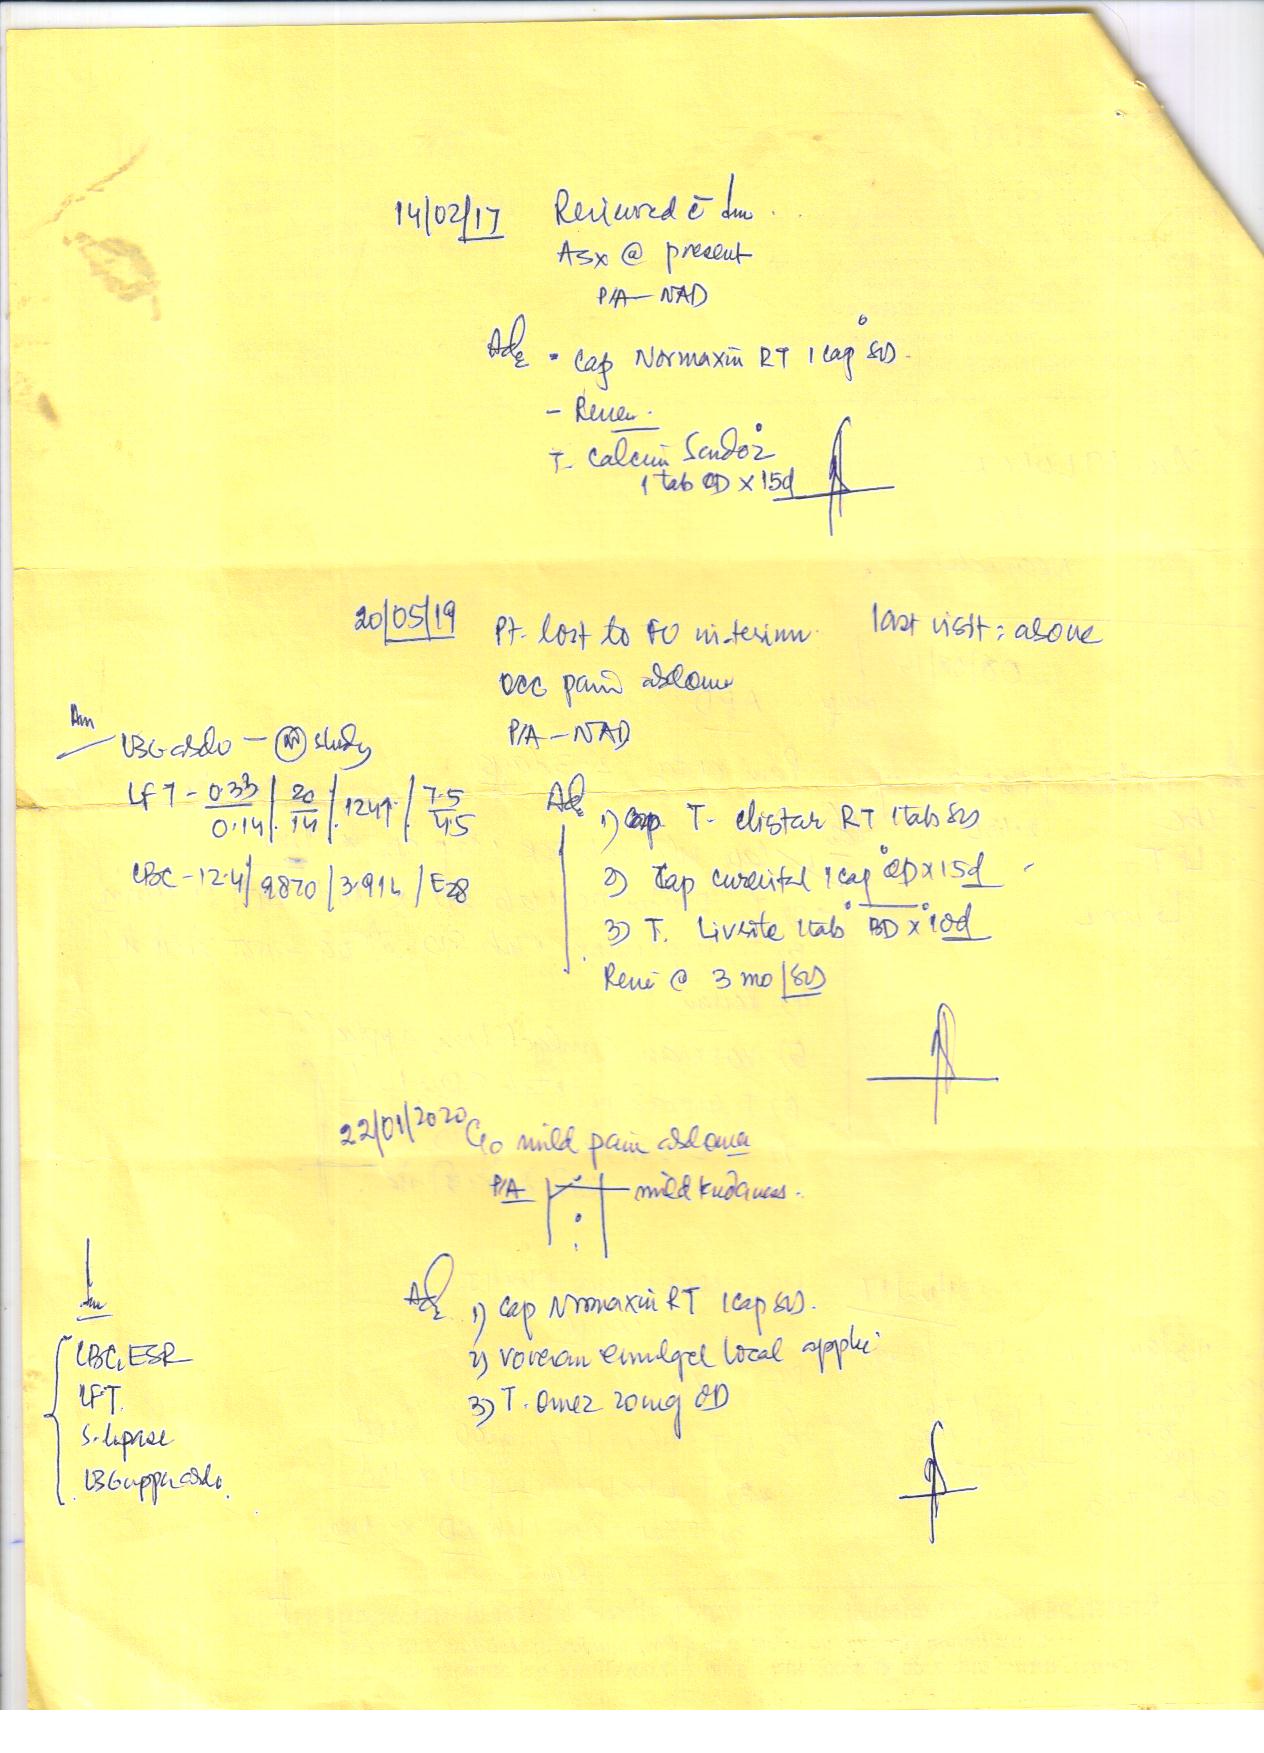 14/02/17 Reviewed c̄ Inv..
ASx @ present
P/A - NAD
Adv • Cap Normaxin RT 1 cap SOS.
- Review.
T. Calcium Sandoz
1 tab OD x 15d
20/05/19 Pt. lost to FU in interim. last visit: above
occ pain abdomen
P/A - NAD
Inv
USG abdo - (N) study
LFT - 0.33/0.14 | 20/14 | 124 | 7.5/4.5
CBC - 12.4 | 9870 | 3.91L | E28
Adv 1) T. RT 1 tab SOS
2) Cap 1 cap OD x 15d
3) T. 1 tab BD x 10d
Review @ 3 mo | SOS
22/01/2020 C/o mild pain abdomen
P/A mild tenderness.
Inv
CBC, ESR
LFT.
S. lipase
USG upper abdo.
Adv 1) Cap Normaxin RT 1 cap SOS.
2) Voveran emulgel local appli
3) T. Omez 20mg OD